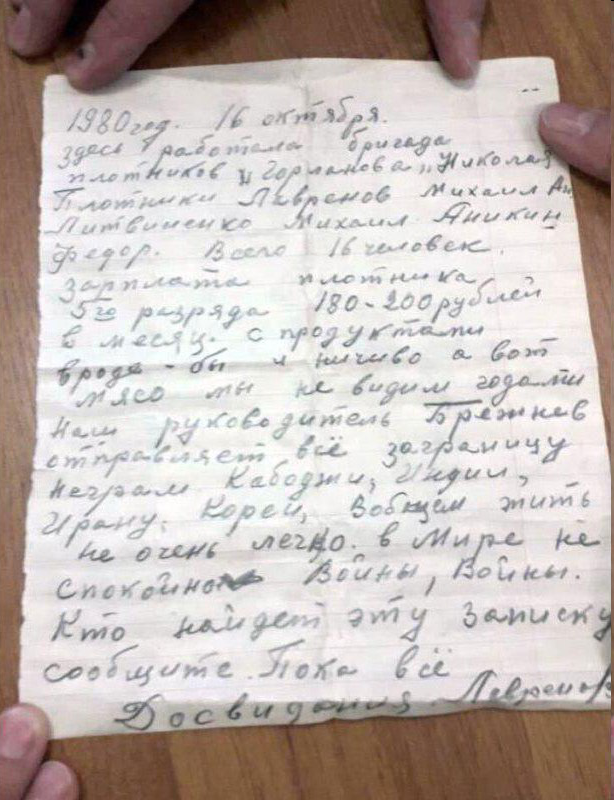 1980 год. 16 октября.
здесь работала бригада
плотников „Горланова„ Николая
Плотники Лавренов Михаил Ан.
Литвиненко Михаил. Аникин
Федор. Всего 16 человек.
Зарплата плотника
5го разряда 180-200 рублей
в месяц. с продуктами
вроде-бы и ничиво а вот
мясо мы не видим годами
наш руководитель Брежнев
отправляет всё заграницу
неграм, Кабоджи, Индии,
Ирану, Кореи, Вобщем жить
не очень легко. в Мире не
спокойно Войны, Войны.
Кто найдет эту Записку
сообщите. Пока всё
Досвидания. Лавренов